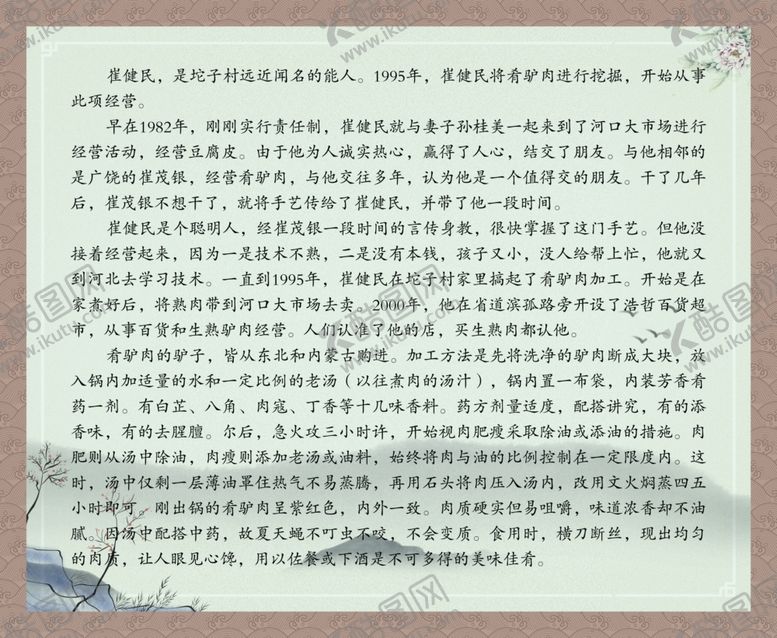 崔健民，是坨子村远近闻名的能人。1995年，崔健民将肴驴肉进行挖掘，开始从事
此项经营。
早在1982年，刚刚实行责任制，崔健民就与妻子孙桂美一起来到了河口大市场进行
经营活动，经营豆腐皮。由于他为人诚实热心，赢得了人心，结交了朋友。与他相邻的
是广饶的崔茂银，经营肴驴肉，与他交往多年，认为他是一个值得交的朋友。干了几年
后，崔茂银不想干了，就将手艺传给了崔健民，并带了他一段时间。
崔健民是个聪明人，经崔茂银一段时间的言传身教，很快掌握了这门手艺。但他没
接着经营起来，因为一是技术不熟，二是没有本钱，孩子又小，没人给帮上忙，他就又
到河北去学习技术。一直到1995年，崔健民在坨子村家里搞起了肴驴肉加工。开始是在
家煮好后，将熟肉带到河口大市场去卖。2000年，他在省道滨孤路旁开设了浩哲百货超
市，从事百货和生熟驴肉经营。人们认准了他的店，买生熟肉都认他。
肴驴肉的驴子，皆从东北和内蒙古购进。加工方法是先将洗净的驴肉断成大块，放
入锅内加适量的水和一定比例的老汤（以往煮肉的汤汁），锅内置一布袋，内装芳香肴
药一剂。有白芷、八角、肉寇、丁香等十几味香料。药方剂量适度，配搭讲究，有的添
香味，有的去腥膻。尔后，急火攻三小时许，开始视肉肥瘦采取除油或添油的措施。肉
肥则从汤中除油，肉瘦则添加老汤或油料，始终将肉与油的比例控制在一定限度内。这
时，汤中仅剩一层薄油罩住热气不易蒸腾，再用石头将肉压入汤内，改用文火焖蒸四五
小时即可。刚出锅的肴驴肉呈紫红色，内外一致。肉质硬实但易咀嚼，味道浓香却不油
腻。因汤中配搭中药，故夏天蝇不叮虫不咬，不会变质。食用时，横刀断丝，现出均匀
的肉质，让人眼见心馋，用以佐餐或下酒是不可多得的美味佳肴。
酷图网
www.ikutu.com